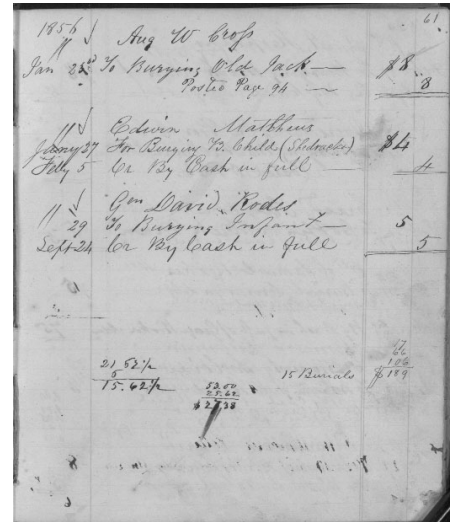 61
1856
Aug W Cross
Jan 23rd To Burying Old Jack — $8
Posted Page 94 — 8
" Edwin Matthews
Jany 27 For Burying B. Child (Shadrachs) $4
Feby 5 Cr By Cash in full — 4
" Gen David Rodes
" 29 To Burying Infant — 5
Sept 24 Cr By Cash in full 5
21 52 1/2
5
15.62 1/2
53.00
25.62
$27.38
15 Burials
17
66
106
$189